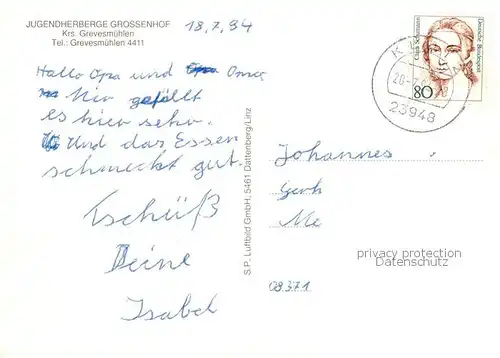 JUGENDHERBERGE GROSSENHOF
Krs. Grevesmühlen
Tel.: Grevesmühlen 4411
18.7.94
Hallo Opa und Oma
Mir gefällt
es hier sehr.
Und das Essen
schmeckt gut.
Tschüß
Deine
Isabel
S.P. Luftbild GmbH, 5461 Dattenberg/Linz
Clara Schumann
Deutsche Bundespost
80
23948
Johannes
Gert
Me
privacy protection
Datenschutz
08371